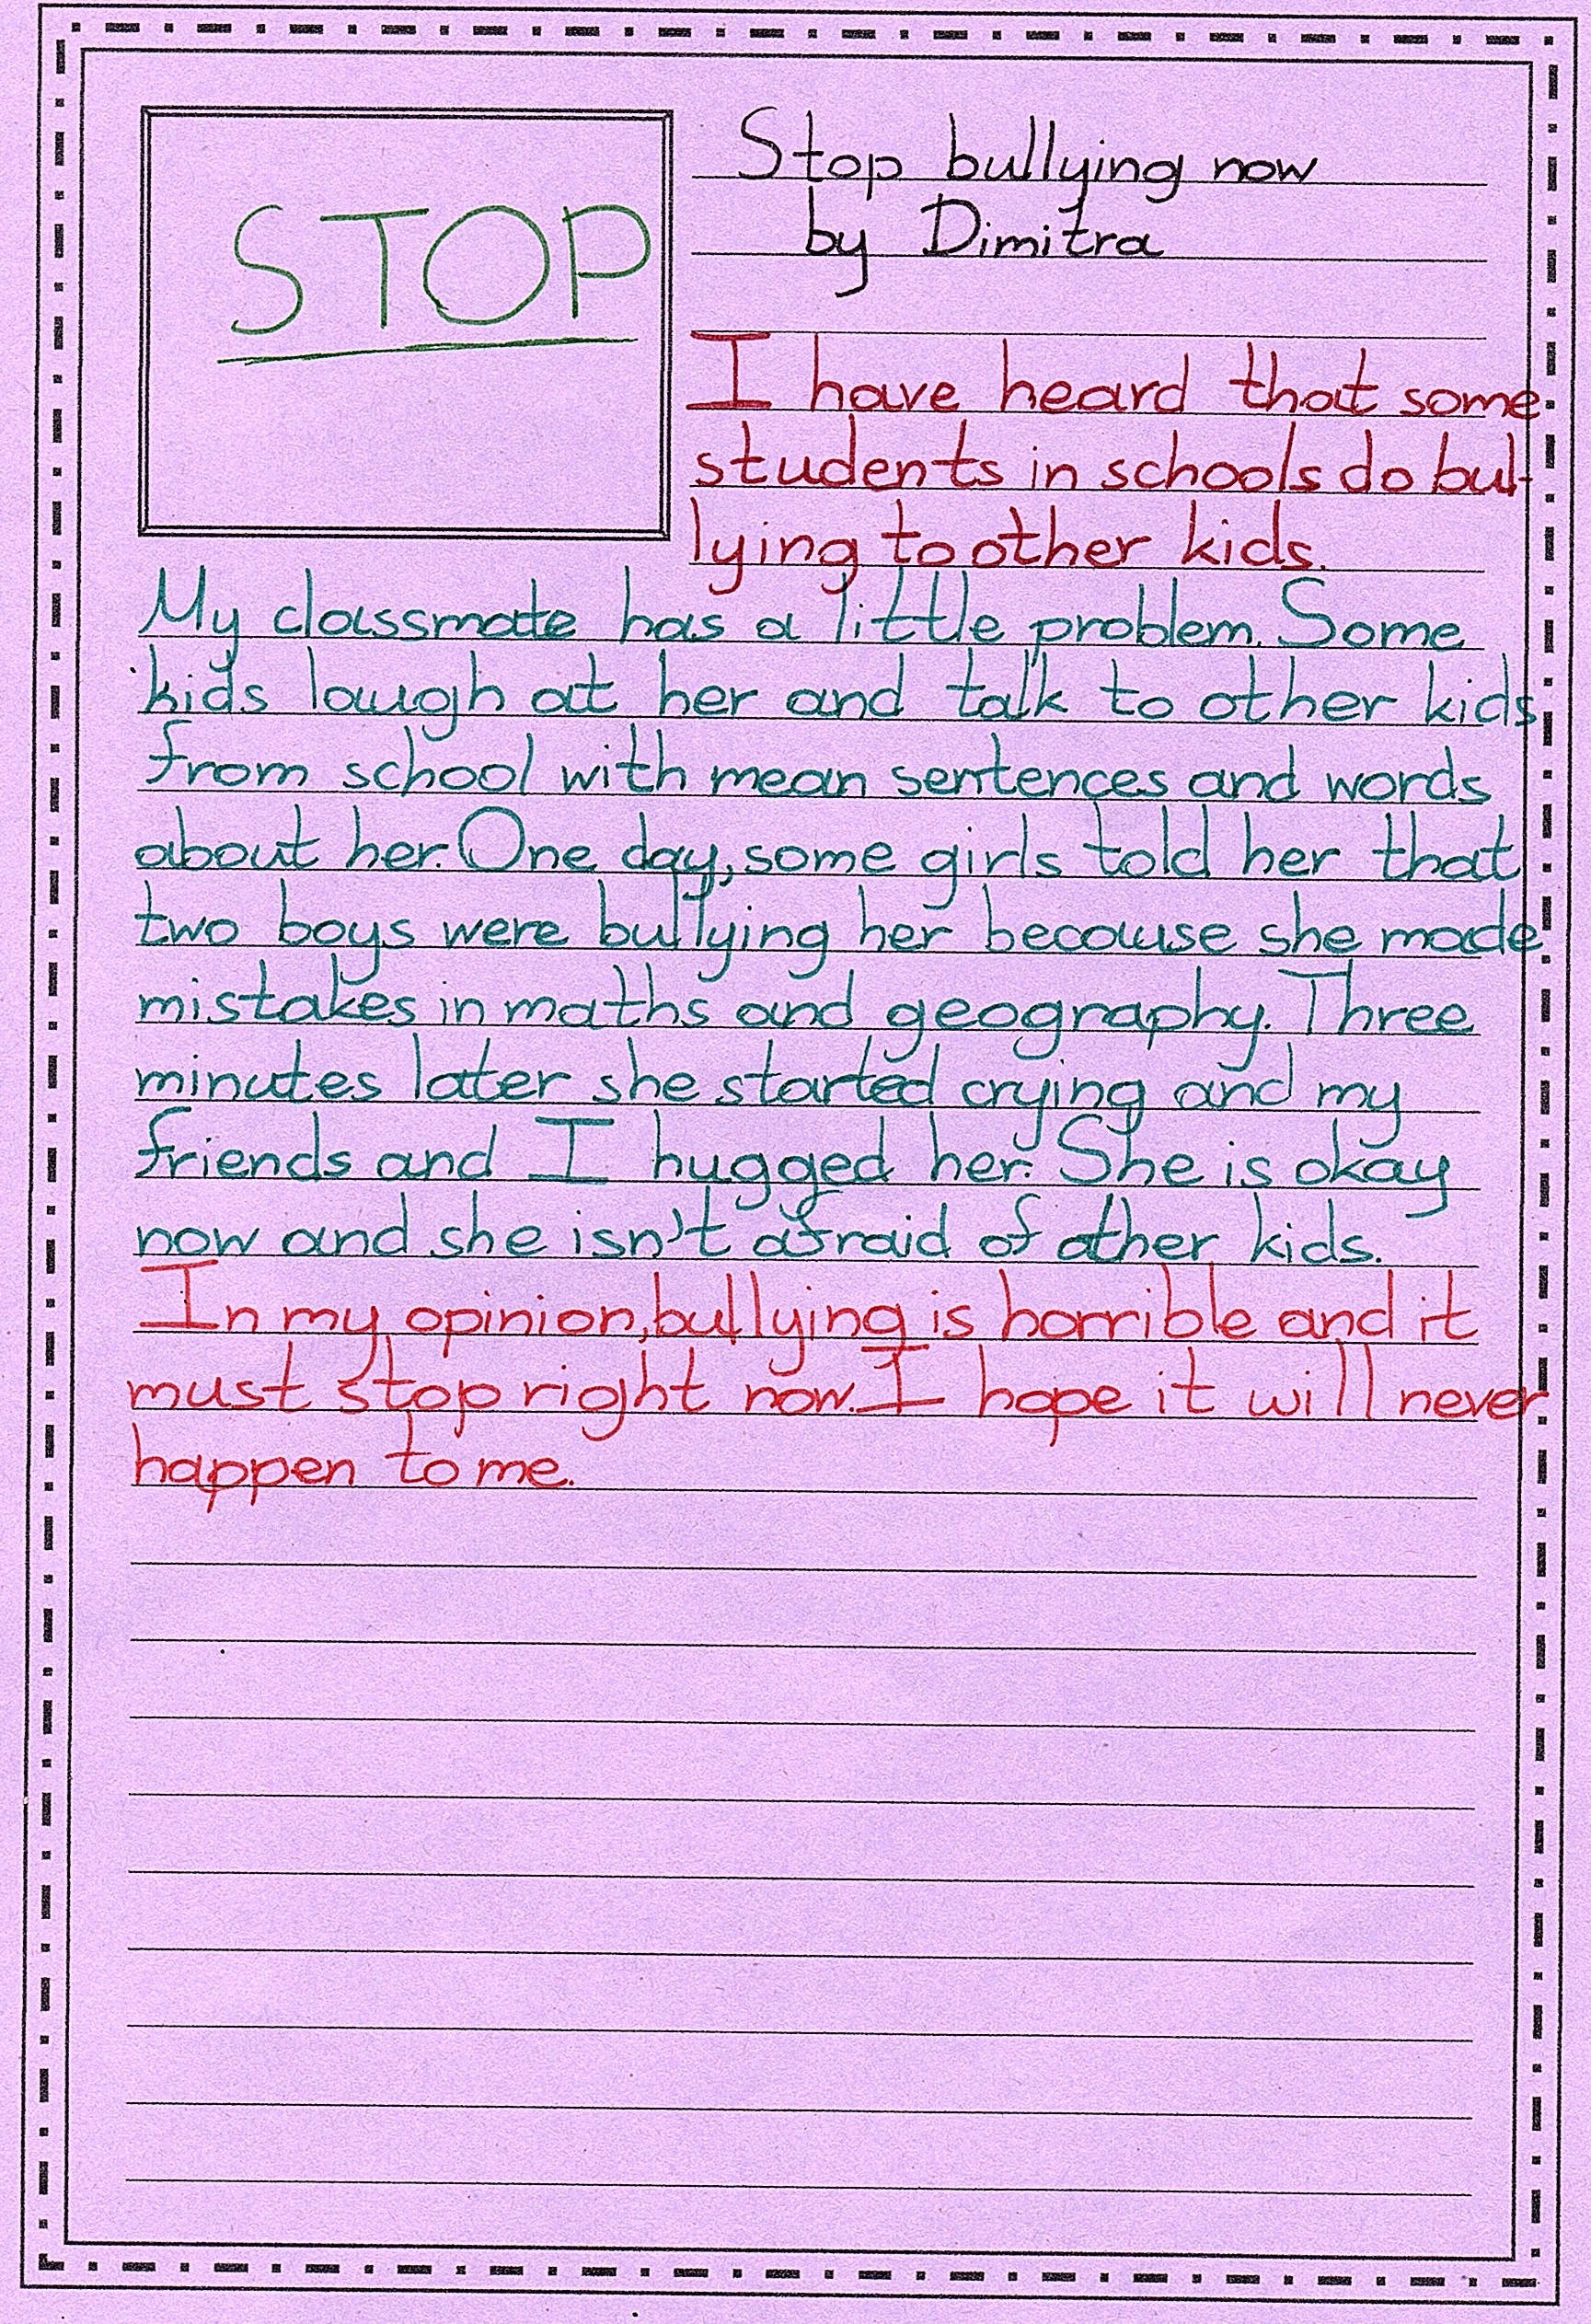 STOP
Stop bullying now
by Dimitra
I have heard that some
students in schools do bul-
lying to other kids.
My classmate has a little problem. Some
kids laugh at her and talk to other kids
from school with mean sentences and words
about her. One day, some girls told her that
two boys were bullying her because she made
mistakes in maths and geography. Three
minutes later she started crying and my
friends and I hugged her. She is okay
now and she isn't afraid of other kids.
In my opinion, bullying is horrible and it
must stop right now. I hope it will never
happen to me.